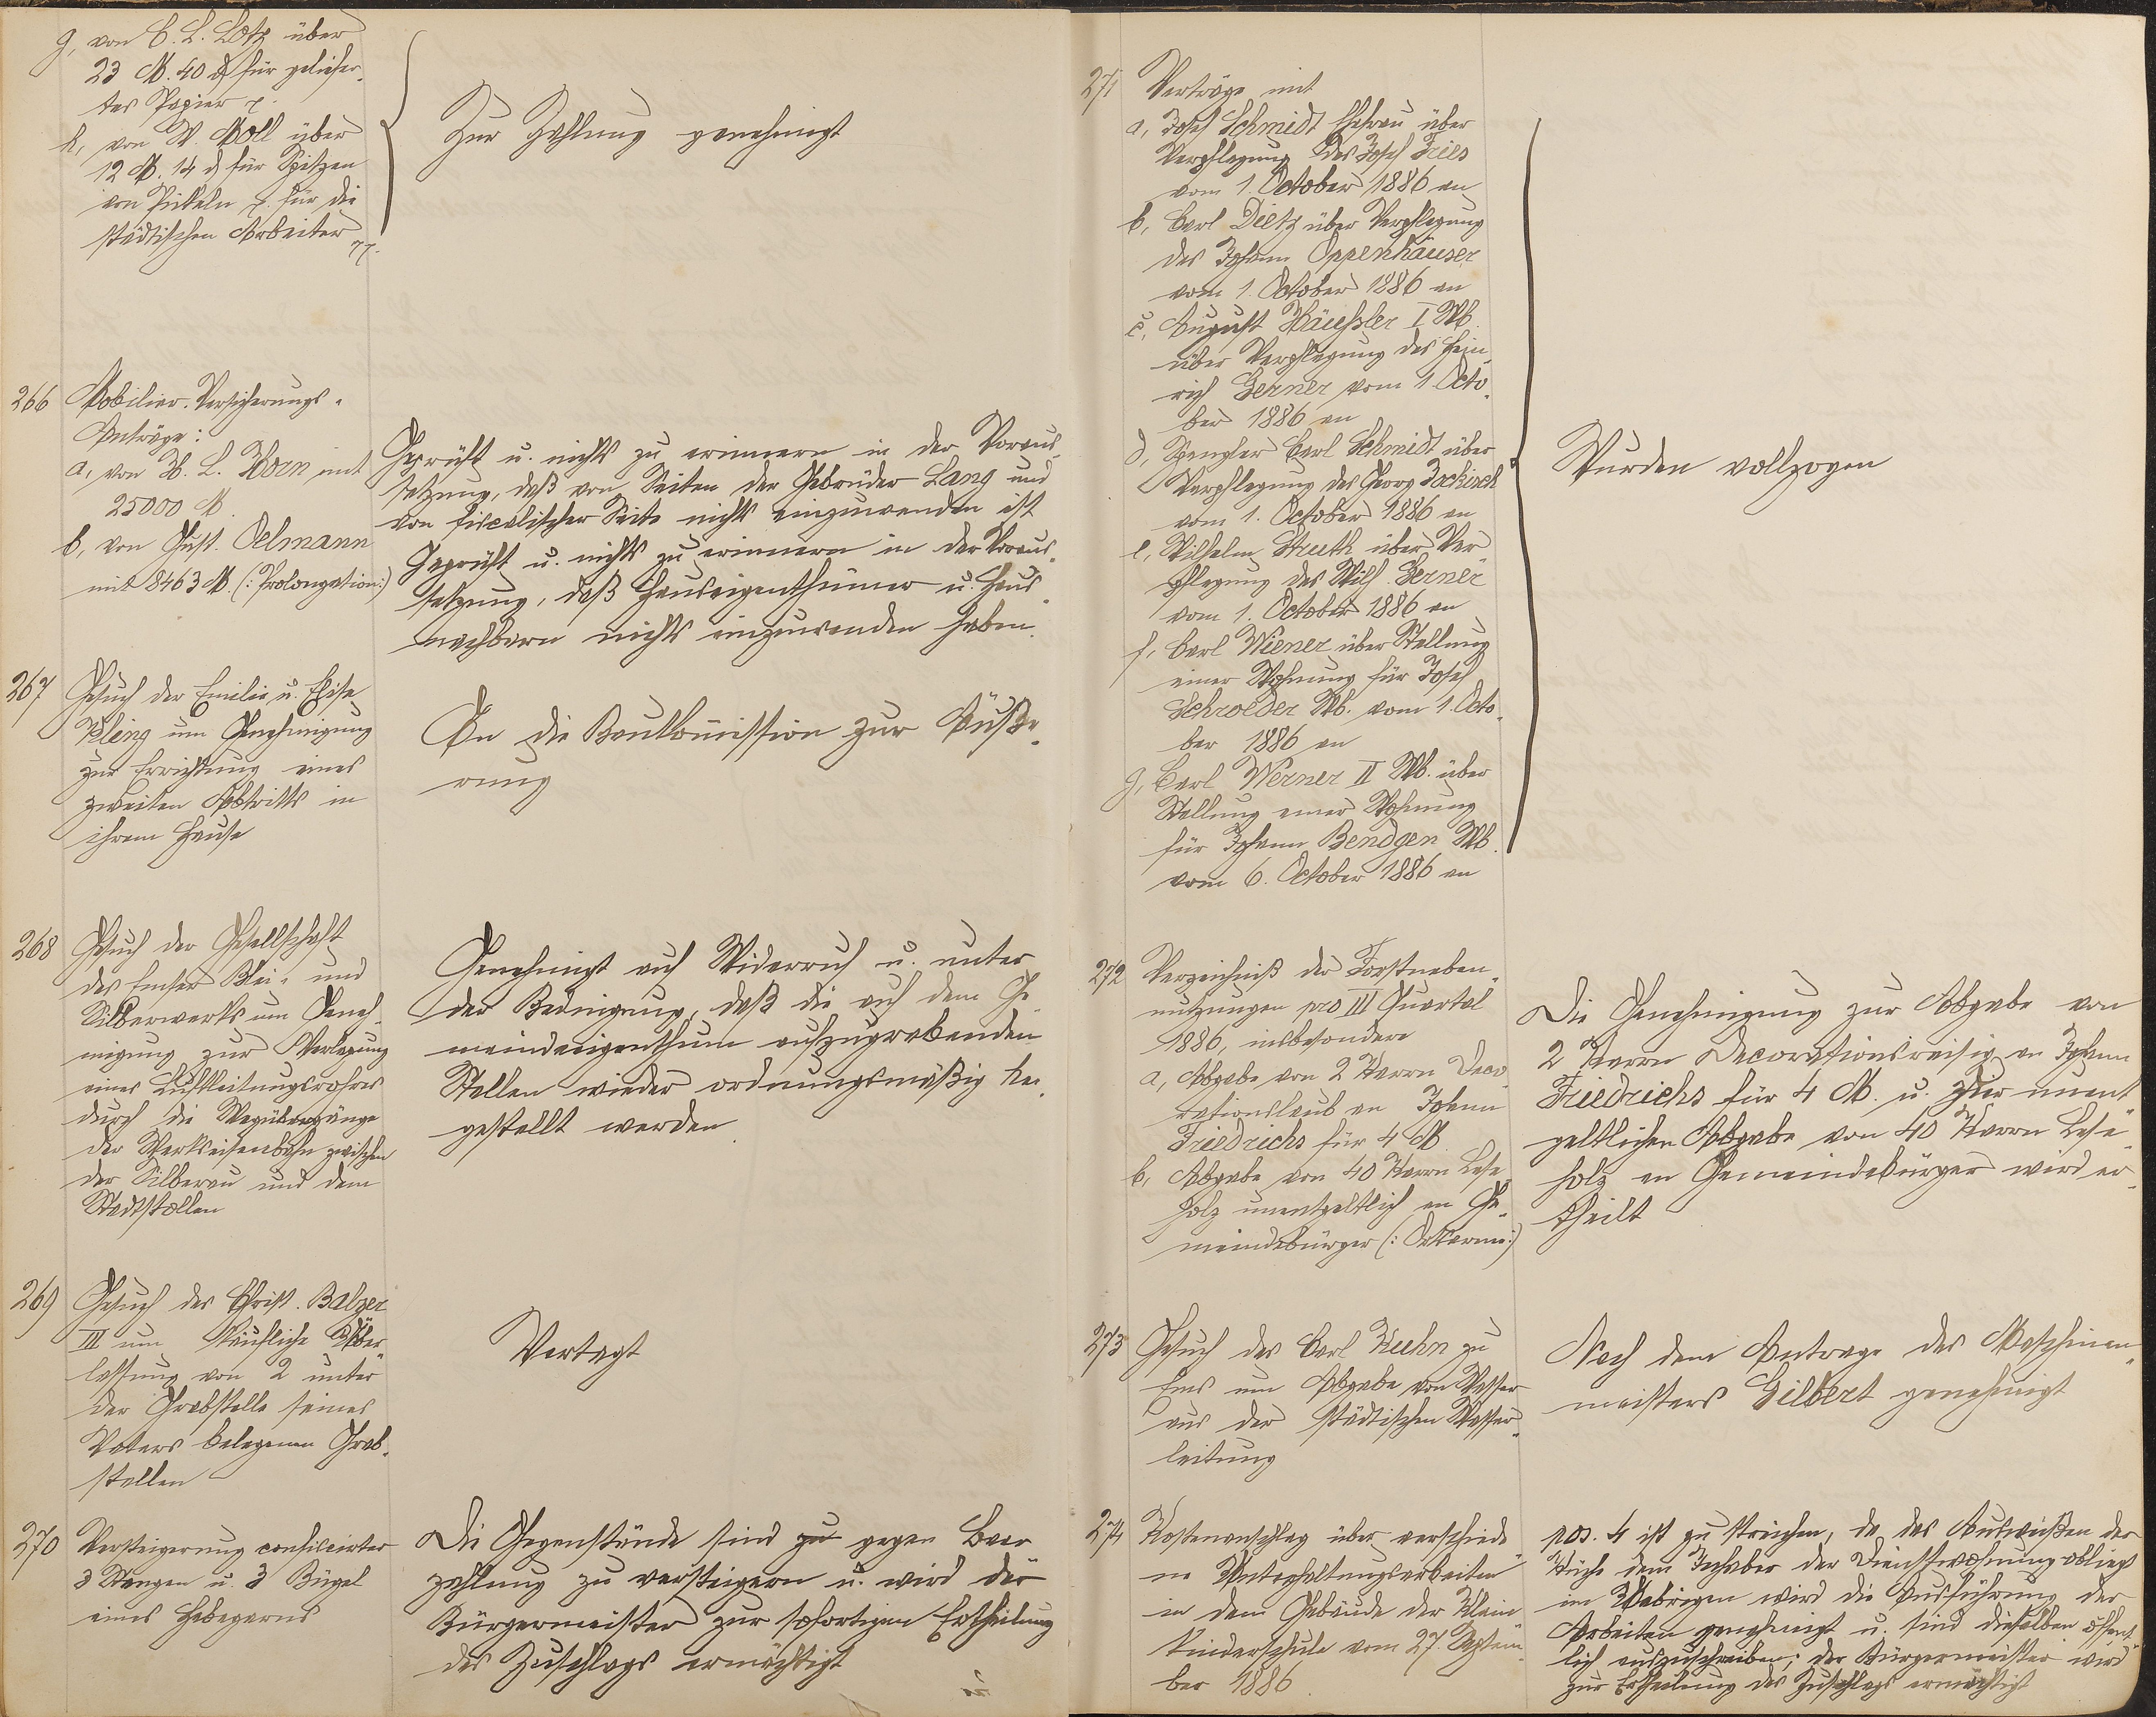 g, von C. L. Lotz über
23 M. 40 ₰ für geliefer-
tes Papier p.
h, von W. Noll über
12 M. 14 ₰ für Spitzen
von Pickeln p. für die
städtischen Arbeiter
Zur Zahlung genehmigt
266 Mobiliar-Versicherungs-
Anträge:
a, von H. L. Horn mit
25000 M.
b, von Gust. Oelmann
mit 8463 M. (: Prolongation:)
Geprüft u. nichts zu erinnern in der Voraus-
setzung, daß von Seiten der Gebrüder Lang und
von fiscalischer Seite nichts einzuwenden ist
Geprüft u. nichts zu erinnern in der Voraus-
setzung, daß Hauseigenthümer u. Haus-
nachbarn nichts einzuwenden haben.
267 Gesuch der Emilie u. Elise
Kling um Genehmigung
zur Errichtung eines
zweiten Abtritts in
ihrem Hause
An die Baukom̄ission zur Äuße-
rung
268 Gesuch der Gesellschaft
des Emser Blei- und
Silberwerks um Geneh-
migung zur Verlegung
eines Luftleitungsrohres
durch die Wegübergänge
der Werkseisenbahn zwischen
der Silberau und dem
Stadtstollen
Genehmigt auf Widerruf u. unter
der Bedingung, daß die auf dem Ge-
meindeeigenthum aufzugrabenden
Stellen wieder ordnungsmäßig her-
gestellt werden
269 Gesuch des Christ. Balzer
III um käufliche Über-
lassung von 2 unter
der Grabstelle seines
Vaters belegenen Grab-
stellen
Vertagt
270 Versteigerung confiscirter
3 Stangen u. 3 Bügel
eines Hebegarns
Die Gegenstände sind zu gegen Baar
zahlung zu versteigern u. wird der
Bürgermeister zur sofortigen Ertheilung
des Zuschlags ermächtigt
271 Verträge mit
a, Josef Schmidt Ehefrau über
Verpflegung des Josef Fries
vom 1. October 1886 an
b, Carl Dietz über Verpflegung
des Johann Oppenhäuser
vom 1. October 1886 an
c, August Häußler I Wb.
über Verpflegung des Hein-
rich Gerner vom 1. Octo-
ber 1886 an
d, Spengler Carl Schmidt über
Verpflegung des Georg Jockisch
vom 1. October 1886 an
e, Wilhelm Struth über Ver
pflegung des Wilh. Gerner
vom 1. October 1886 an
f, Carl Wiener über Stellung
einer Wohnung für Josef
Schroeder Wb. vom 1. Octo-
ber 1886 an
g, Carl Werner II Wb. über
Stellung einer Wohnung
für Johann Bendgen Wb.
vom 6. October 1886 an
Wurden vollzogen
272 Verzeichniß der Forstneben-
nutzungen pro III Quartal
1886, insbesondere
a, Abgabe von 2 Karrn Deco-
rationslaub an Johann
Friedrichs für 4 M.
b, Abgabe von 40 Karrn Lese-
holz unentgeltlich an Ge-
meindebürger (: Ortsarme:)
Die Genehmigung zur Abgabe von
2 Karrn Decorationsreisig an Johann
Friedrichs für 4 M. u. zur unent-
geltlichen Abgabe von 40 Karrn Lese-
holz an Gemeindebürger wird er-
theilt
273 Gesuch des Carl Kuhn zu
Ems um Abgabe von Wasser
aus der städtischen Wasser-
leitung
Nach dem Antrage des Maschinen-
meisters Gilbert genehmigt
274 Kostenanschlag über verschiede-
ne Unterhaltungsarbeiten
in dem Gebäude der Klein
kinderschule vom 27. Septem-
ber 1886
pos. 4 ist zu streichen, da das Ausweißen der
Küche dem Inhaber der Dienstwohnung obliegt
im Uebrigen wird die Ausführung der
Arbeiten genehmigt u. sind dieselben öffent-
lich auszuschreiben; der Bürgermeister wird
zur Ertheilung des Zuschlags ermächtigt